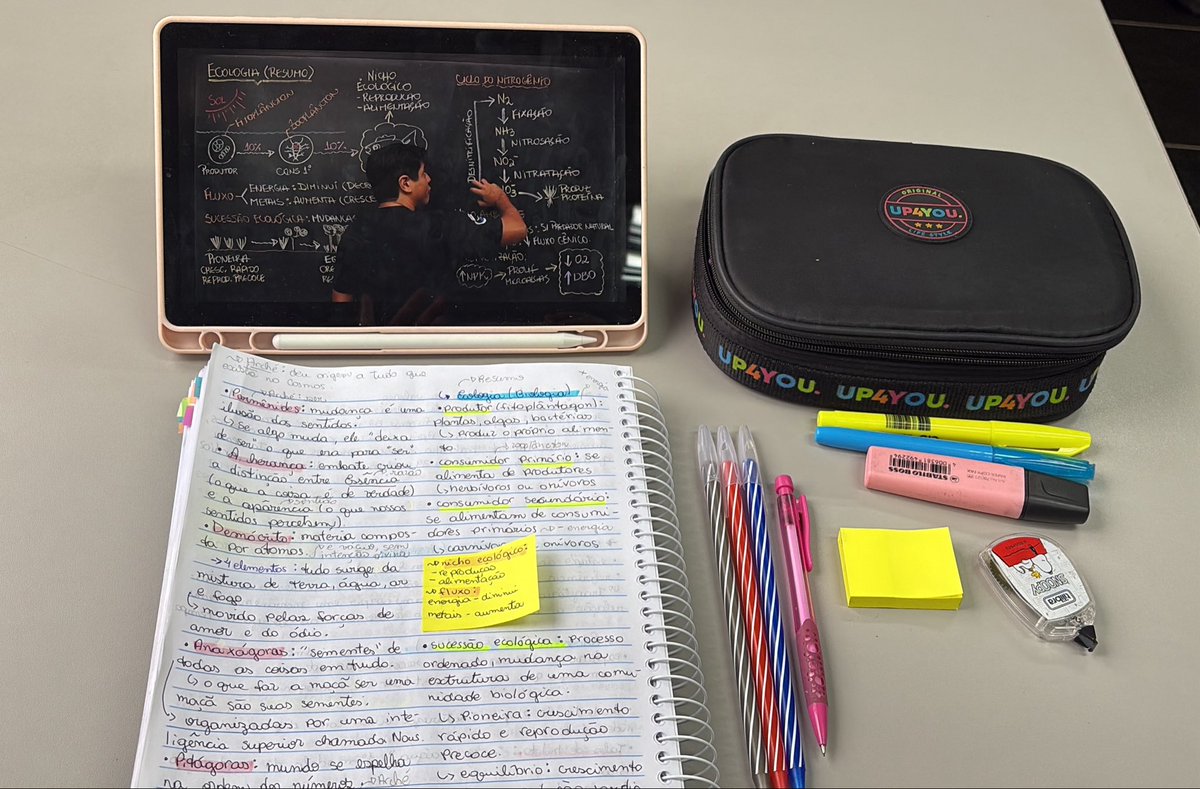 ECOLOGIA (RESUMO)
SOL
FITOPLÂNCTON
ZOOPLÂNCTON
PRODUTOR
10%
CONS 1º
10%
• NICHO
ECOLÓGICO
- REPRODUÇÃO
- ALIMENTAÇÃO
FLUXO
ENERGIA: DIMINUI (DECR
METAIS: AUMENTA (CRESCE
SUCESSÃO ECOLÓGICA: MUDANÇA
PIONEIRA
CRESC. RÁPIDO
REPROD. PRECOCE
CICLO DO NITROGÊNIO
N2
FIXAÇÃO
NH3
NITROSAÇÃO
NO2-
NITRATAÇÃO
DESNITRIFICAÇÃO
PROTEÍNA
S/ PREDADOR NATURAL
↓ FLUXO GÊNICO
ZAÇÃO:
↑NPK
↓ O2
↑ DBO
ORIGINAL
UP4YOU.
LIFE STYLE
UP4YOU. UP4YOU. UP4YOU.
→ Arché: deu origem a tudo que
existe no cosmos
• Parmênides: mudança é uma
ilusão dos sentidos.
↳ se algo muda, ele "deixa
de ser" o que era para "ser"
• A herança: embate criou
a distinção entre essência
(o que a coisa é de verdade)
e a aparência (o que nossos
sentidos percebem)
• Demócrito: matéria compos-
ta por átomos.
→ 4 elementos: tudo surge da
mistura de terra, água, ar
e fogo
↳ movido pelas forças de
amor e do ódio.
• Anaxágoras: "sementes" de
todas as coisas em tudo.
↳ o que faz a maçã ser uma
maçã são suas sementes.
↳ organizadas por uma inte-
ligência superior chamada Nous.
• Pitágoras: mundo se espelha
na ordem dos números. → Arché
→ Resumo
Ecologia (Biologia)
energia
• produtor (fitoplâncton):
plantas, algas, bactérias
↳ produz o próprio alimen-
to
• consumidor primário: se
alimenta de produtores
↳ herbívoros ou onívoros
• consumidor secundário:
se alimentam de consumi-
dores primários → - energia
↳ carnívoros onívoros
→ nicho ecológico:
- reprodução
- alimentação
→ fluxo:
energia - diminui
metais - aumenta
• sucessão ecológica: processo
ordenado, mudança na
estrutura de uma comu-
nidade biológica.
↳ Pioneira: crescimento
rápido e reprodução
precoce.
↳ equilíbrio: crescimento
STABILO BOSS
SNOOPY
tilibra